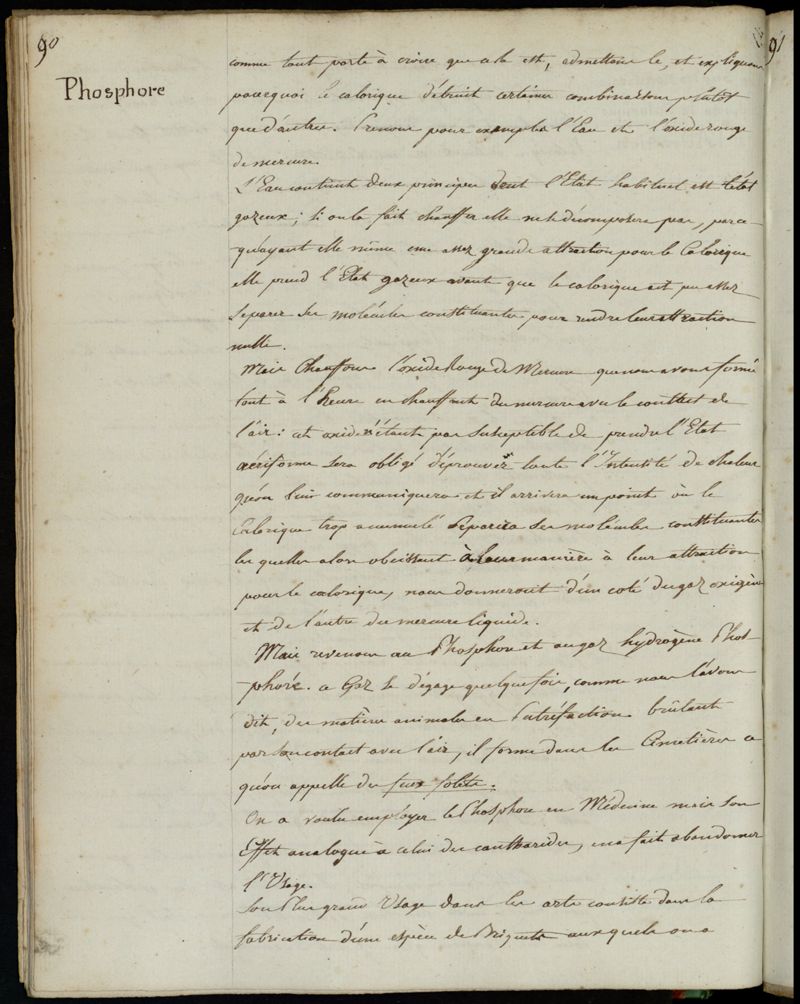 90
91
Phosphore
comme tout porte à croire que cela est, admettons le, et expliquons
pourquoi le calorique détruit certaines combinaisons plutôt
que d'autres. Prenons pour exemples l'Eau et l'oxide rouge
de mercure.
L'Eau contient deux principes dont l'Etat habituel est l'état
gazeux; si on la fait chauffer elle ne se décomposera pas, parce
qu'ayant elle même une assez grande attraction pour le Calorique
elle prend l'Etat gazeux avant que le calorique ait pu assez
séparer ses molécules constituantes pour rendre leur attraction
nulle.
Mais Chauffons l'oxide Rouge de Mercure que nous avons formé
tout à l'heure en chauffant du mercure avec le contact de
l'air: cet oxide n'étant pas susceptible de prendre l'Etat
aériforme sera obligé d'éprouver toute l'Intensité de chaleur
qu'on lui communiquera et il arrivera un point où le
Calorique trop accumulé séparera ses molécules constituantes
les quelles alors obéissant à leur manière à leur attraction
pour le calorique, nous donneront d'un coté du gaz oxigène
et de l'autre du mercure liquide.
Mais revenons au Phosphore et au gaz hydrogène Phos-
-phoré. ce Gaz se dégage quelquefois, comme nous l'avons
dit, des matières animales en Putréfaction brûlant
par son contact avec l'air, il forme dans les Cimetières ce
qu'on appelle des feux folets.
On a voulu employer le Phosphore en Médecine mais son
Effet analogue à celui des cantharides, en a fait abandonner
l'Usage.
Son Plus grand Usage dans les arts consiste dans la
fabrication d'une espèce de Briquets auxquels on a